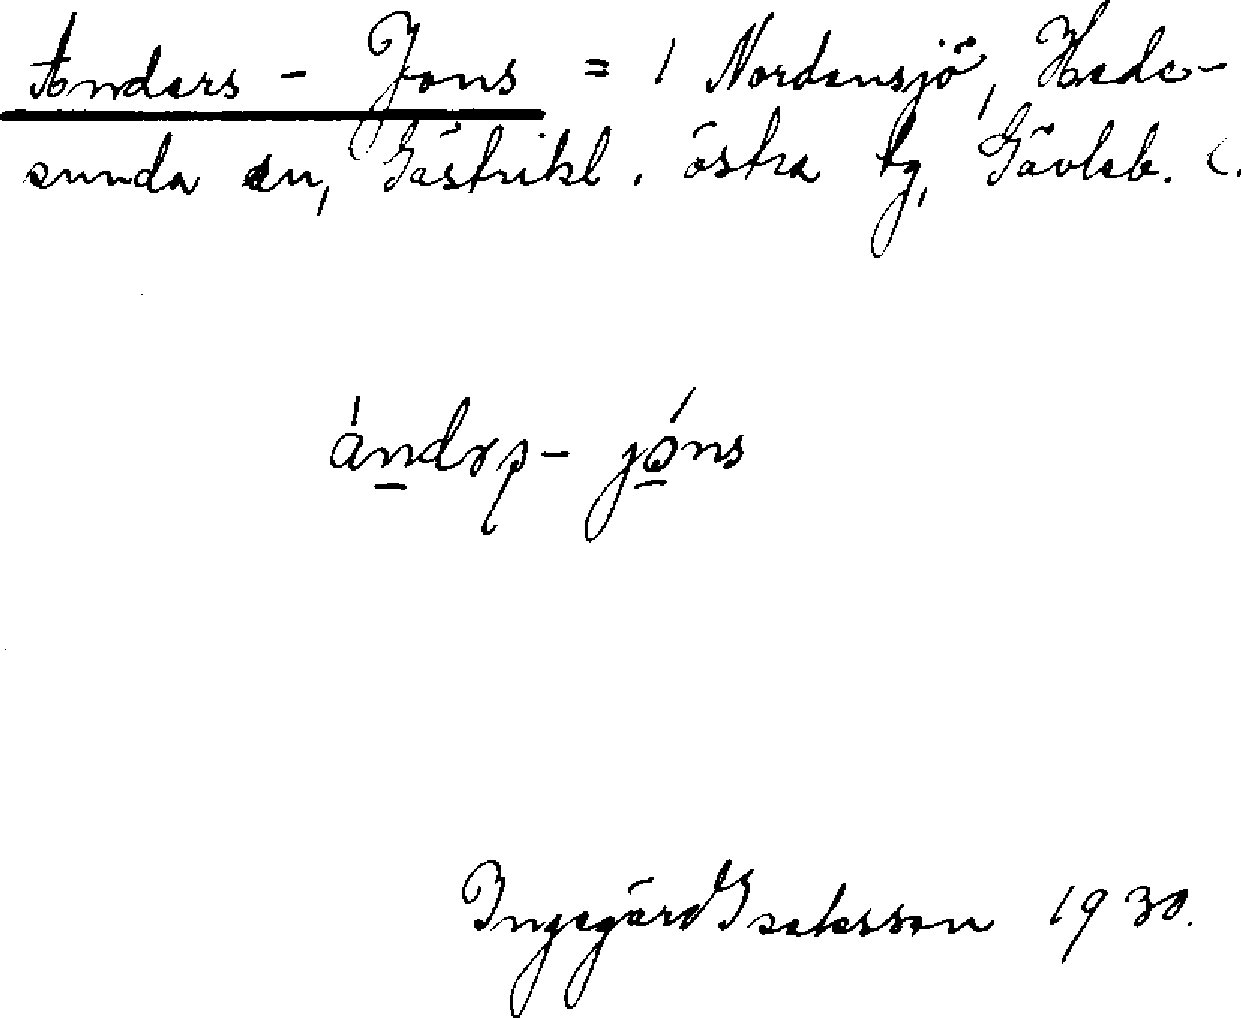 Anders - Jons = 1 Nordansjö, Hede-
sunda sn, Gästrikl. östra tg, Gävleb. l.
ándrs - jóns
Ingegärd Isaksson 1930.